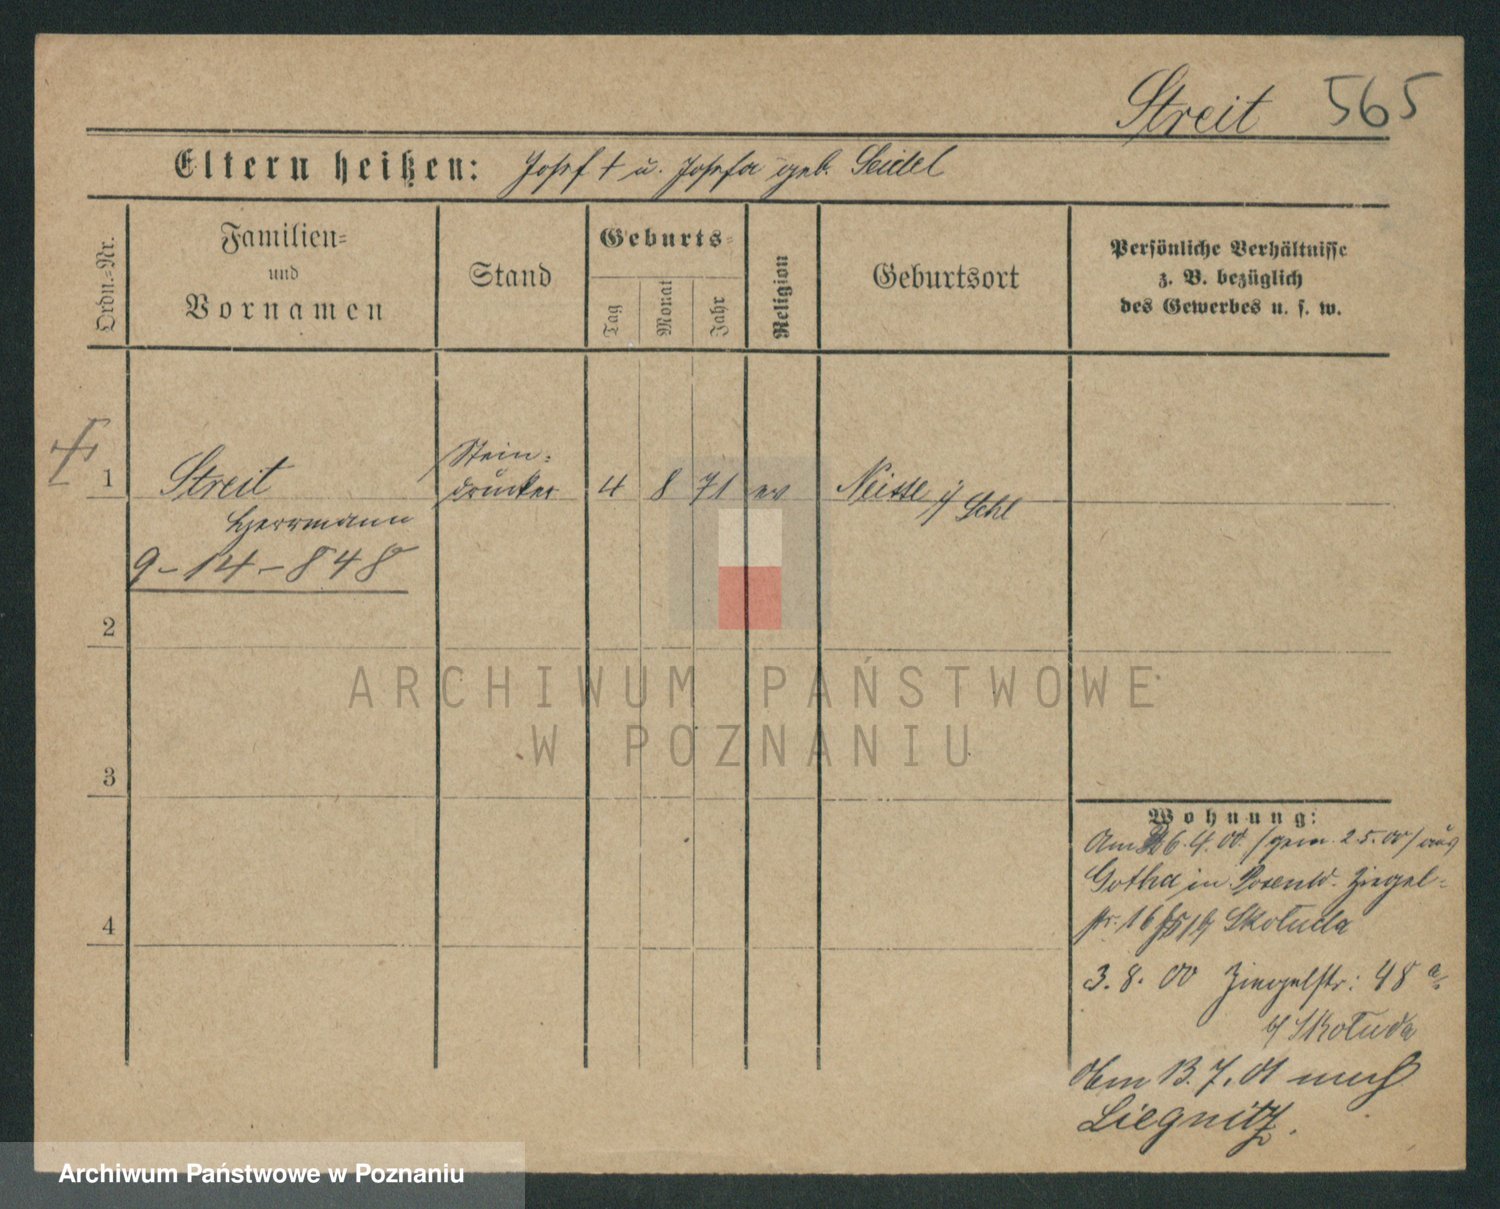 Streit 565
Eltern heißen: Josef † u. Josefa geb. Seidel
Ordn.-Nr.
Familien-
und
Vornamen
Stand
Geburts-
Tag
Monat
Jahr
Religion
Geburtsort
Persönliche Verhältnisse
z. B. bezüglich
des Gewerbes u. s. w.
1 Streit Stein-
drucker 4 8 71 ev Neisse i/ Schl
Herrmann
9-14-848
2
3
4
Wohnung:
Am 26.4.00 /gem. 2.5.00/ aus
Gotha in Ziegel-
str. 16 Skotuda
3.8.00 Ziegelstr: 48 a
b/ Skotuda
Abm 13.7.01 nach
Liegnitz.
ARCHIWUM PAŃSTWOWE
W POZNANIU
Archiwum Państwowe w Poznaniu